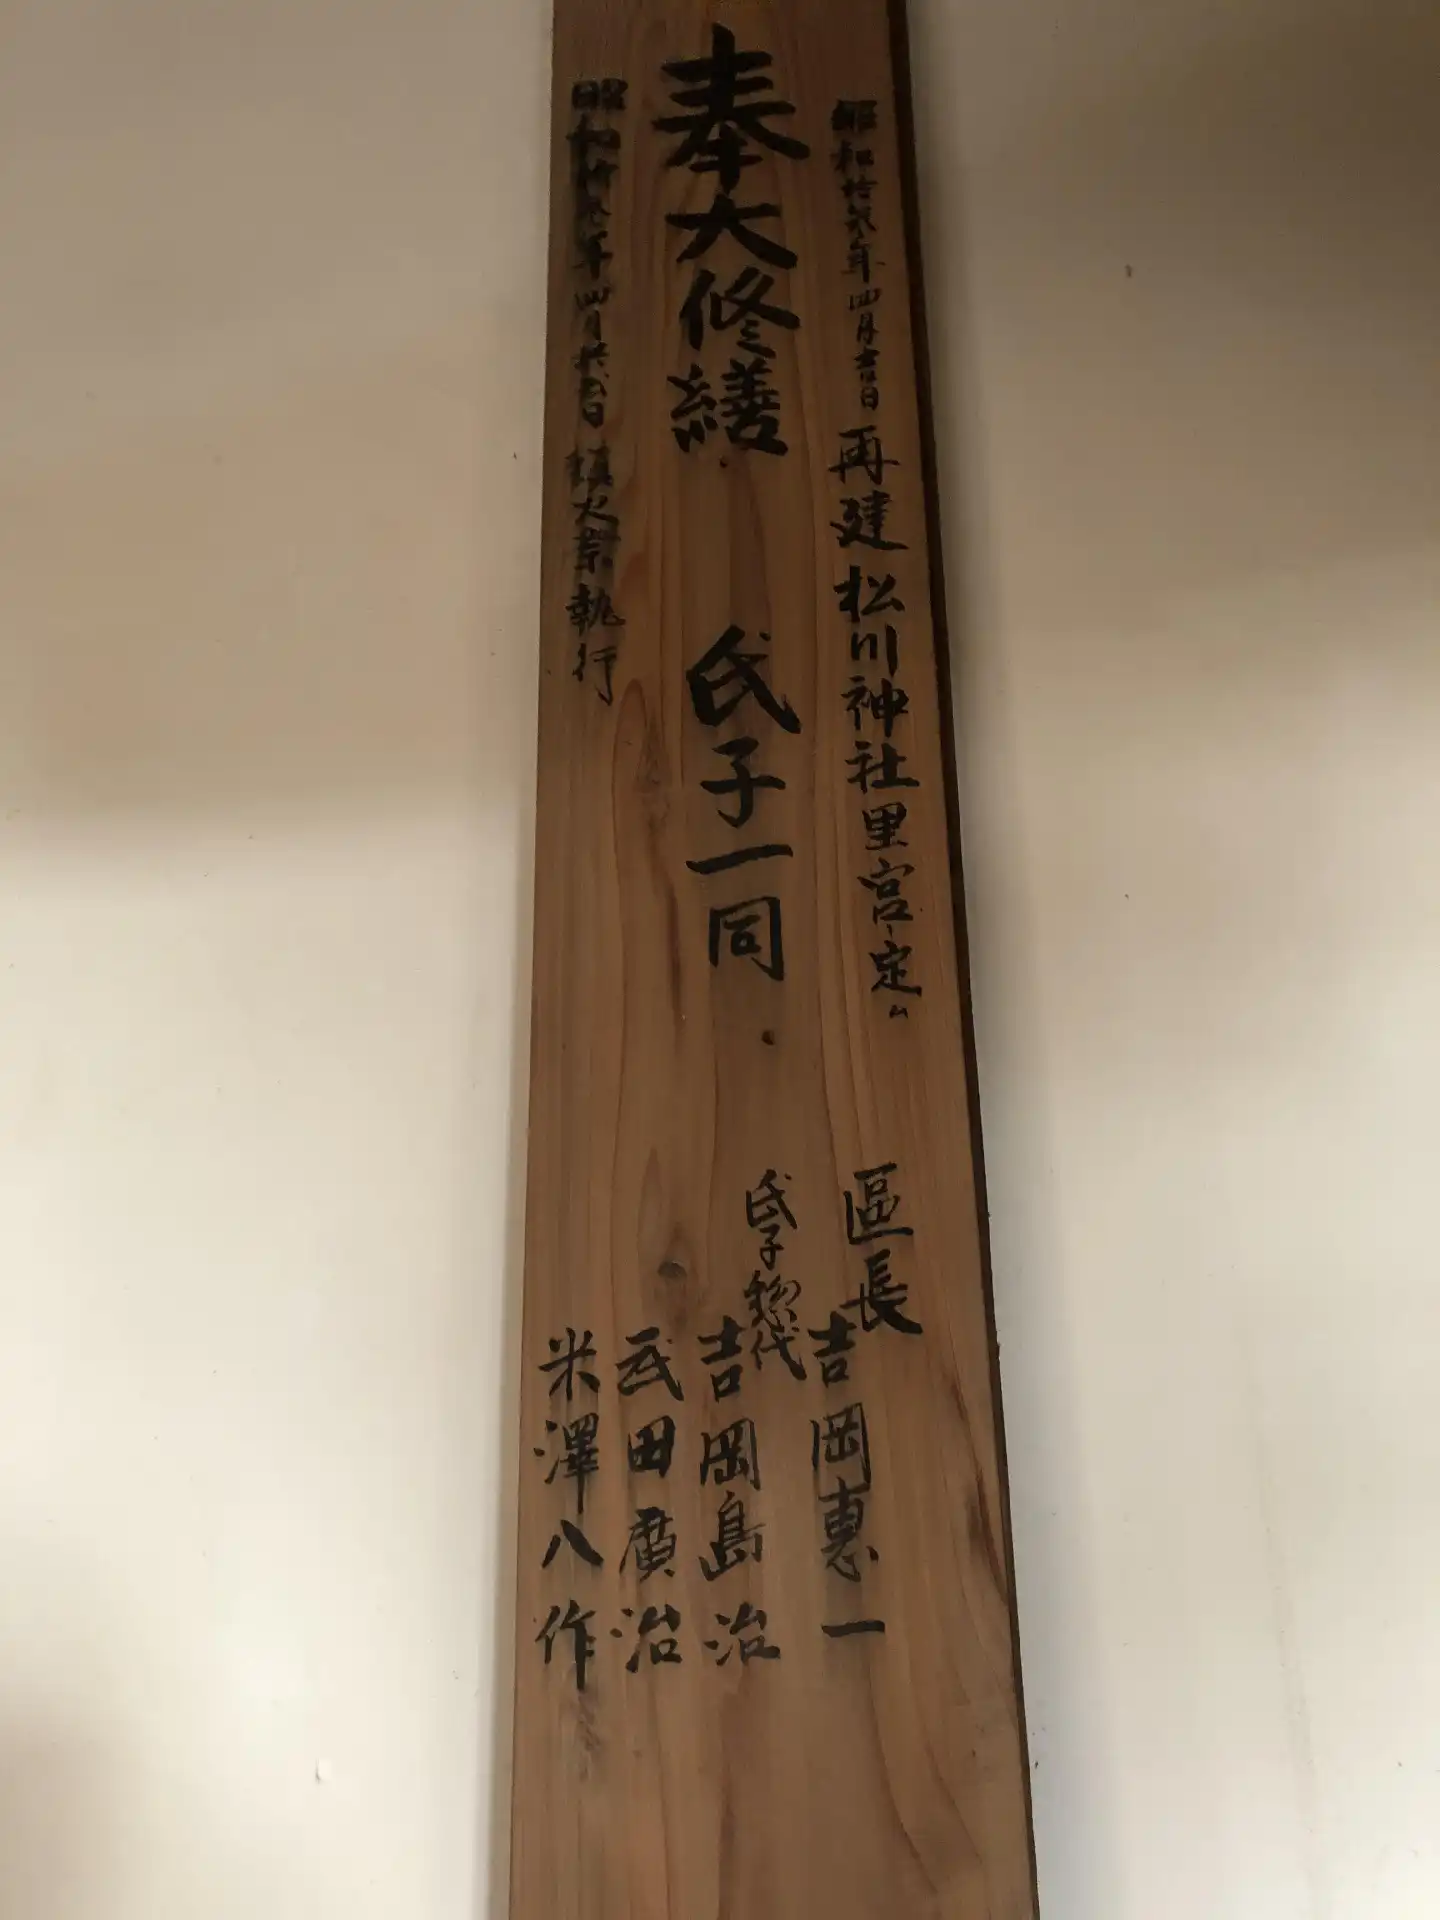 昭和拾弐年四月吉日 再建松川神社里宮定ム
奉大修繕 氏子一同
昭和拾 年四月 日 鎮火祭執行
區長
吉岡惠一
氏子惣代
吉岡島治
武田廣治
米澤八作